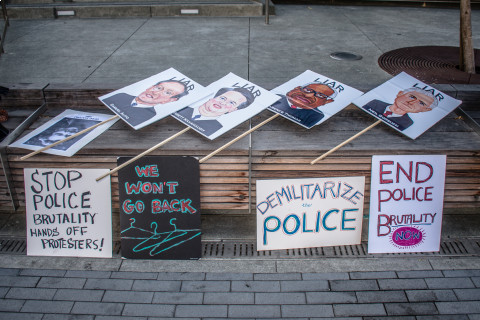 LIAR
LIAR
LIAR
LIAR
STOP
POLICE
BRUTALITY
HANDS OFF
PROTESTERS!
WE
WON'T
GO
BACK
DEMILITARIZE
the
POLICE
END
POLICE
BRUTALITY
NOW